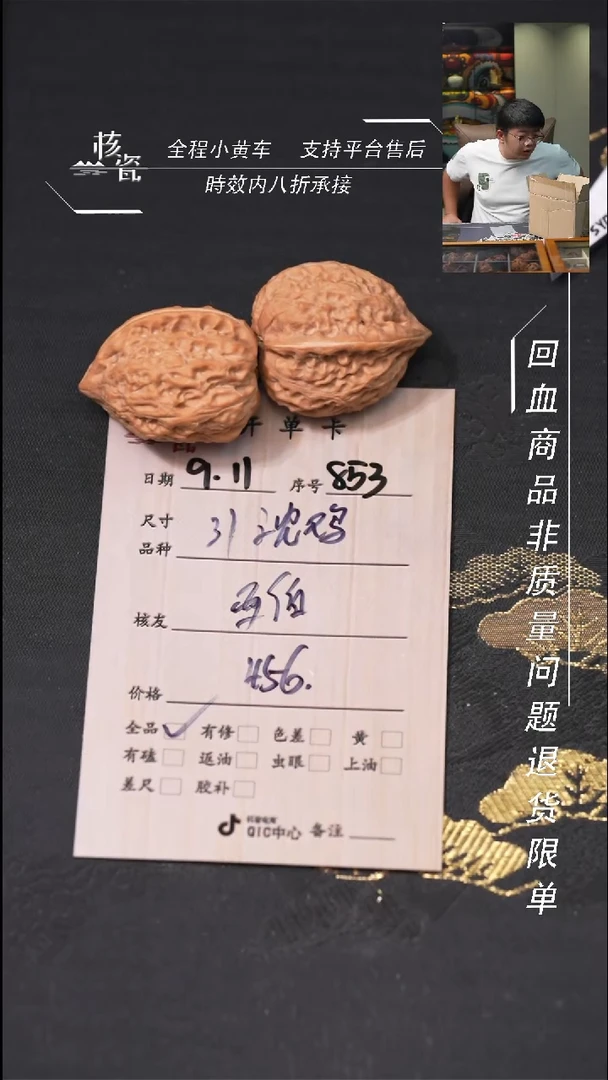 核瓷
全程小黄车 支持平台售后
時效内八折承接
回血商品非质量问题退货限单
开单卡
日期 9.11 序号 853
尺寸
品种
核友
价格 456.
全品 有修 色差 黄
有磕 返油 虫眼 上油
差尺 胶补
抖音电商
QIC中心 备注